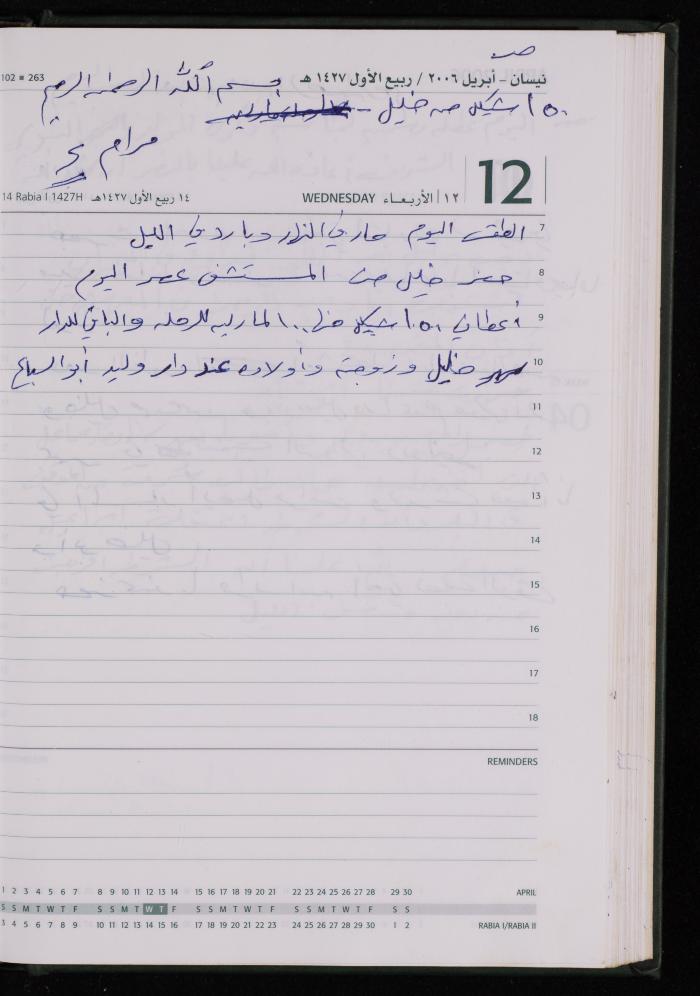 102 ▪ 263
نيسان - أبريل ٢٠٠٦ / ربيع الأول ١٤٢٧ هـ
بسم الله الرحمن الرحيم
١٥٠ شيكل من خليل -
مرام
12
14 Rabia I 1427H ١٤ ربيع الأول ١٤٢٧هـ WEDNESDAY الأربعاء ١٢
7 الطقس اليوم حار في النهار وبارد في الليل
8 حضر خليل من المستشفى عصر اليوم
9 أعطاني ١٥٠ شيكل منها ١٠٠ والباقي للدار
10 خليل وزوجته وأولاده عند دار وليد أبو السباع
11
12
13
14
15
16
17
18
REMINDERS
1 2 3 4 5 6 7 8 9 10 11 12 13 14 15 16 17 18 19 20 21 22 23 24 25 26 27 28 29 30 APRIL
S S M T W T F S S M T W T F S S M T W T F S S M T W T F S S
3 4 5 6 7 8 9 10 11 12 13 14 15 16 17 18 19 20 21 22 23 24 25 26 27 28 29 30 1 2 RABIA I/RABIA II